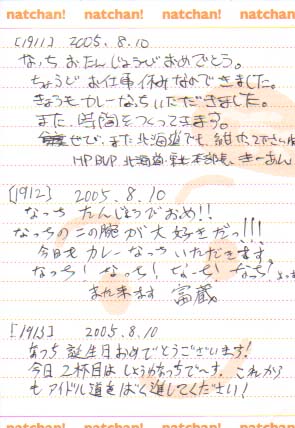 natchan! natchan! natchan! natchan!
[1911] 2005.8.10
なっち おたんじょうびおめでとう。
ちょうどお仕事休みなのできました。
きょうもカレーなっちいただきました。
また、時間をつくってきます。
ぜひ、また北海道でも、
HPBVP 北海道 本部長、きーあん
[1912] 2005.8.10
なっち たんじょうびおめ!!
なっちのこの腕が大好きだっ!!!
今日もカレーなっちいただきます。
なっち! なっち! なっち! なっち!
また来ます 富蔵
[1913] 2005.8.10
なっち誕生日おめでとうございます!
今日2杯目はしょうゆなっちでーす。これから
もアイドル道をばく進してください!
natchan! natchan! natchan! natchan!